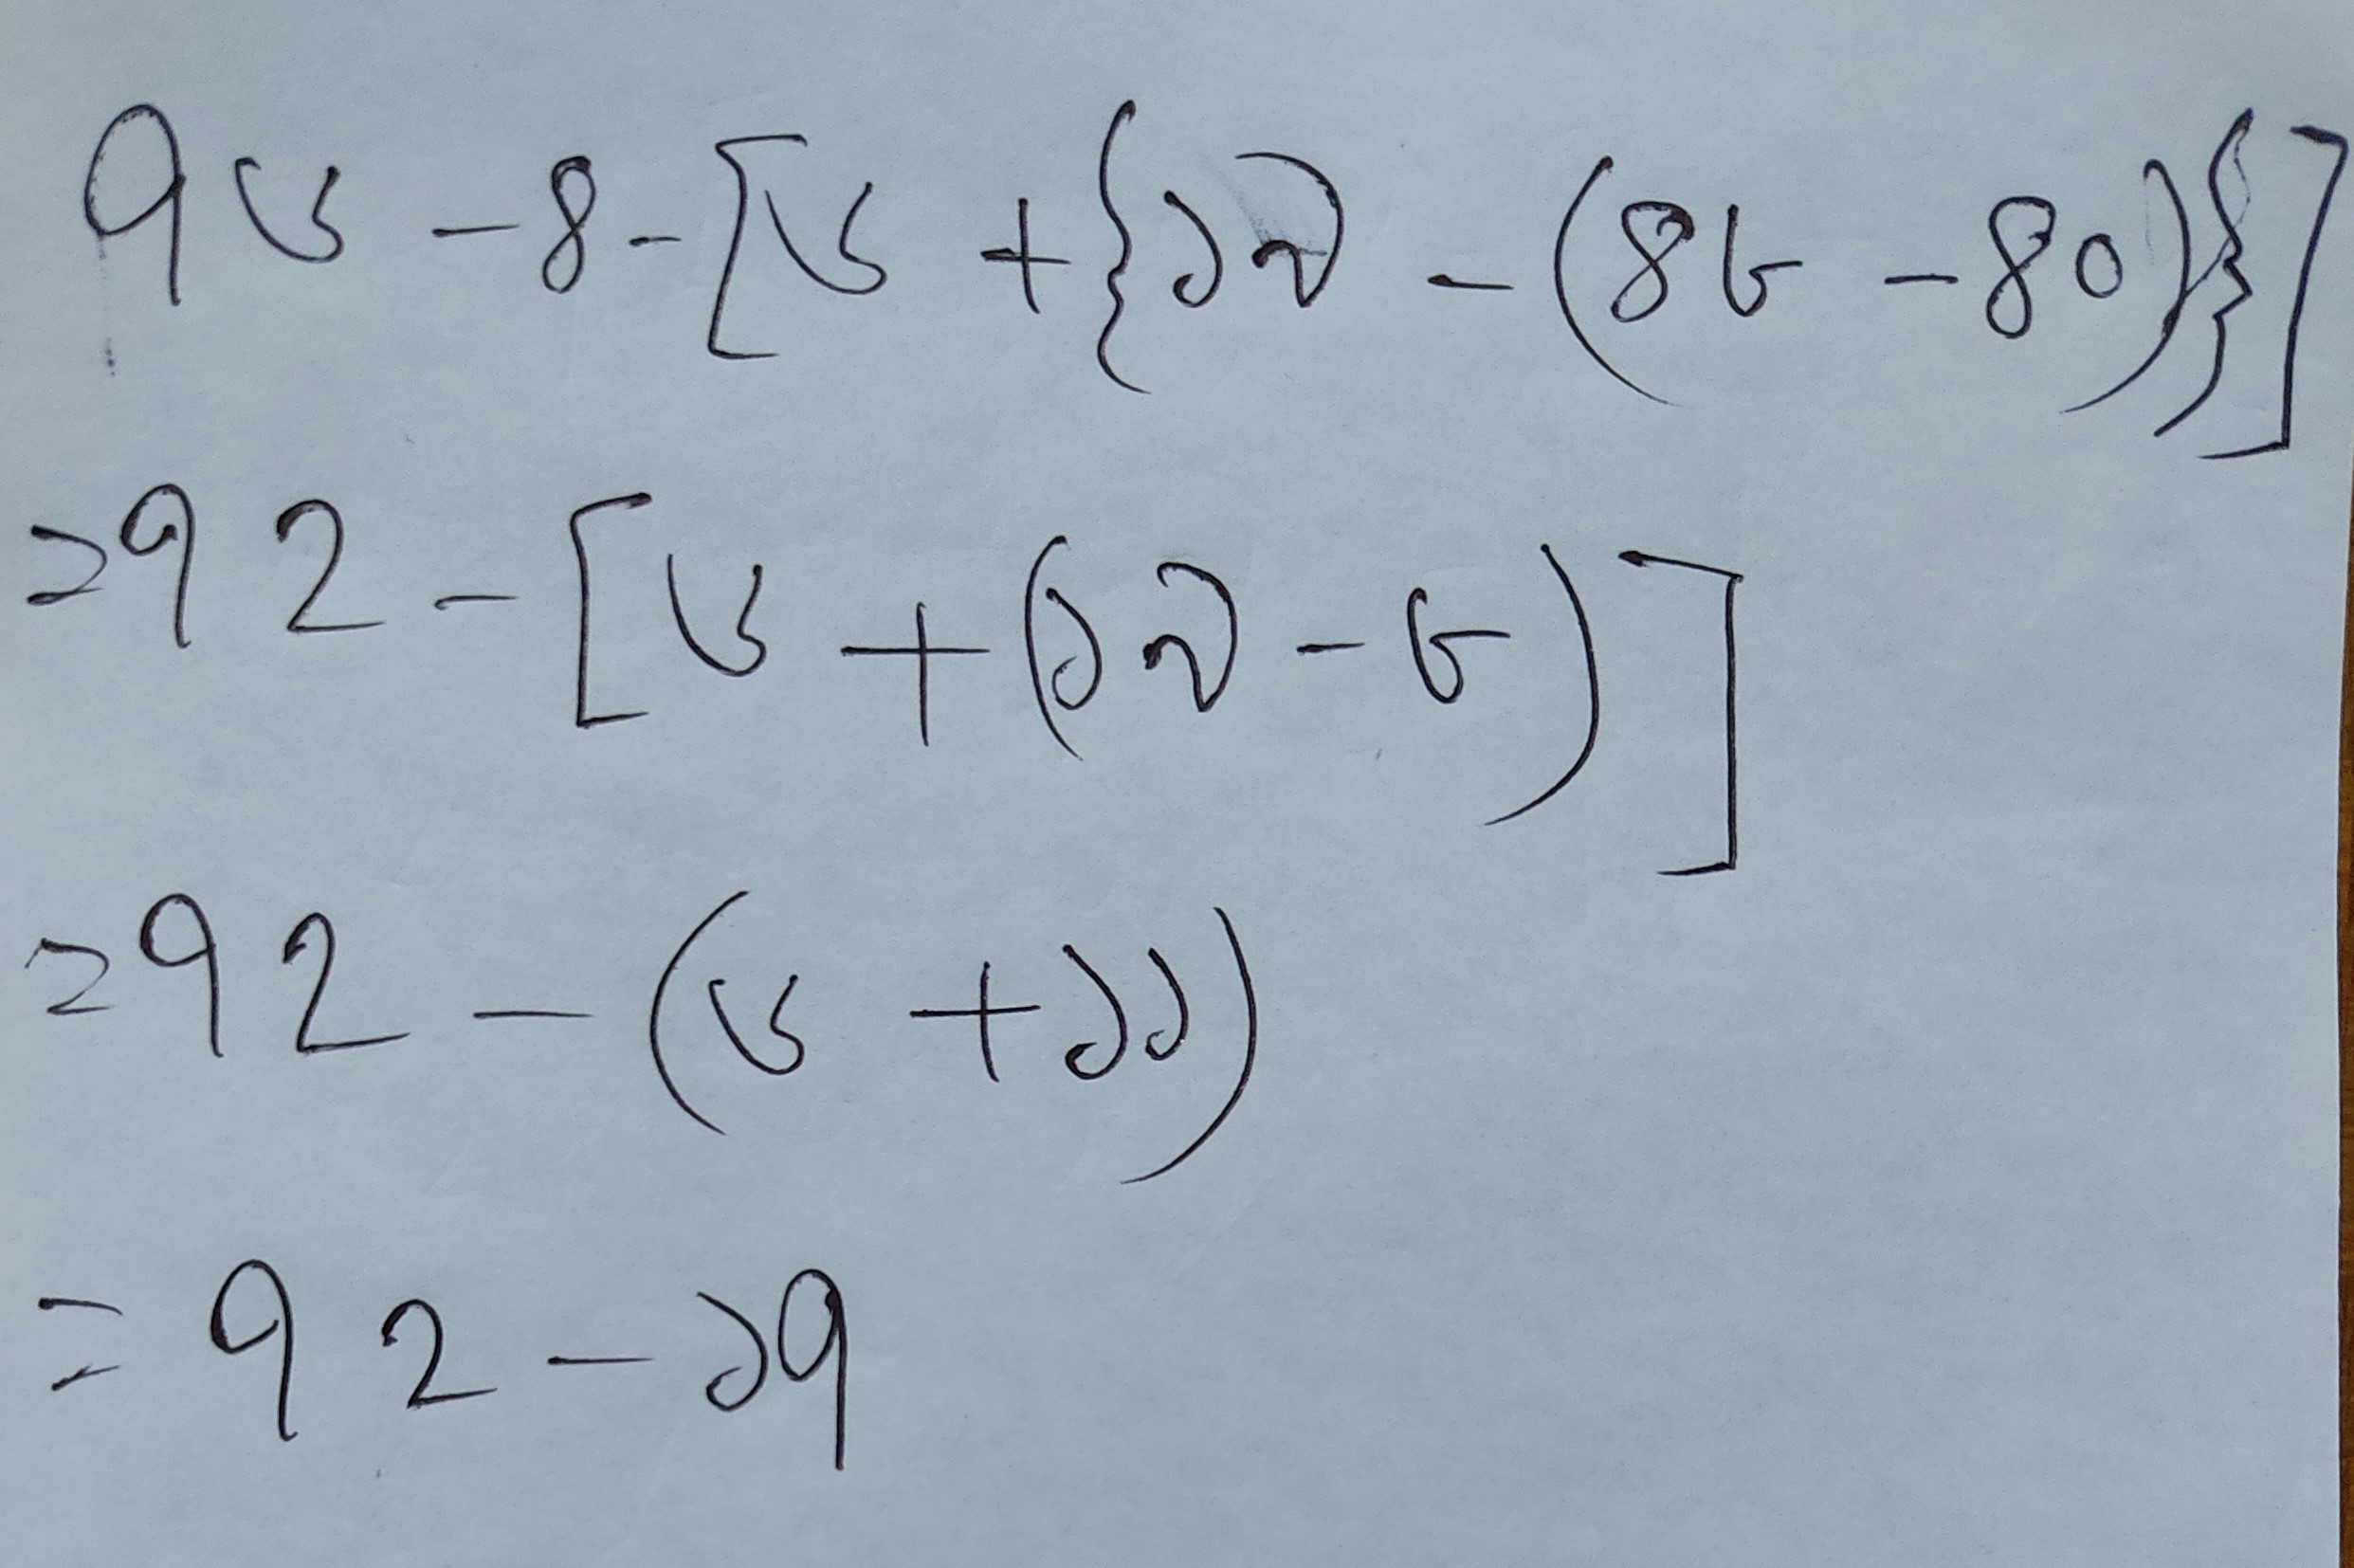 ৭৬ - ৪ - [৬ + {১৯ - (৪৮ - ৪০)}]
= ৭২ - [৬ + (১৯ - ৮)]
= ৭২ - (৬ + ১১)
= ৭২ - ১৭